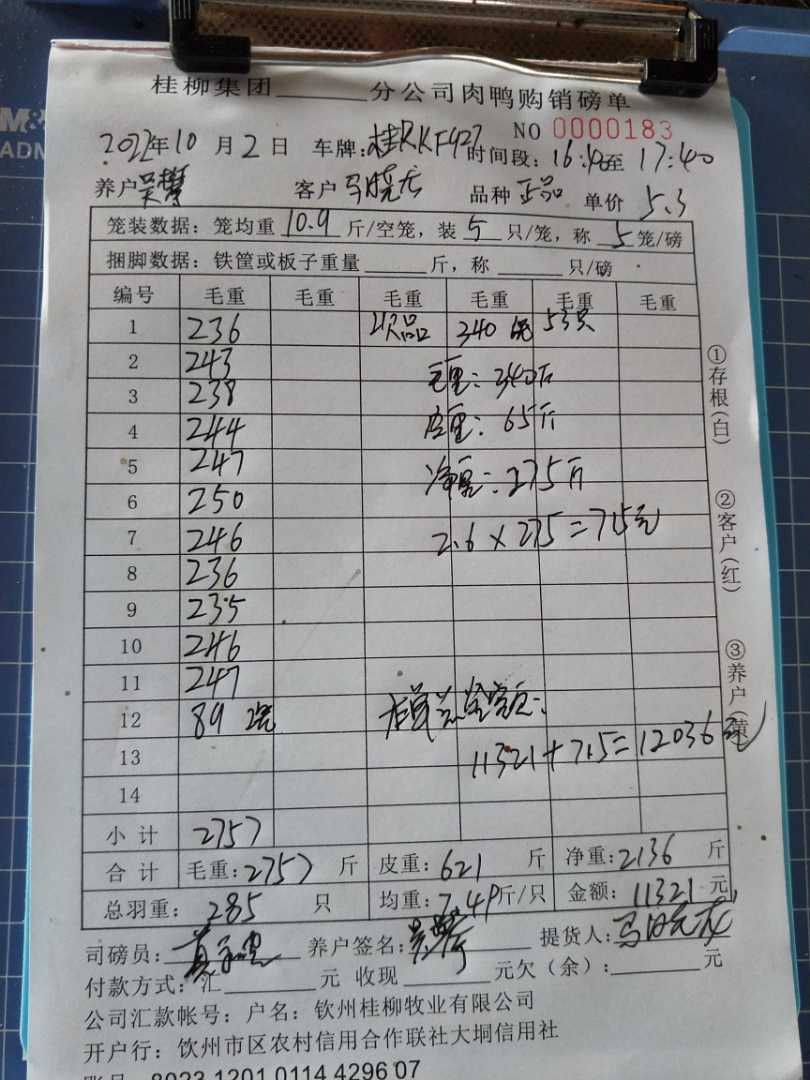 桂柳集团______分公司肉鸭购销磅单
NO 0000183
2022年10月2日 车牌:桂RKF427 时间段:16:40至17:40
养户 客户 马晓龙 品种 正品 单价 5.3
笼装数据:笼均重 10.9 斤/空笼,装 5 只/笼,称 5 笼/磅
捆脚数据:铁筐或板子重量______斤,称______只/磅
编号 毛重 毛重 毛重 毛重 毛重 毛重
1 236 次品 340 53只
2 243 毛重:340斤
3 238
4 244 皮重:65斤
5 247 净重:275斤
6 250
7 246 2.6×275=715元
8 236
9 235
10 246
11 247
12 89 2笼 本单总金额:
13 11321+715=12036元
14
小计 2757
合计 毛重:2757 斤 皮重:621 斤 净重:2136 斤
总羽重: 285 只 均重:7.49斤/只 金额:11321元
司磅员: 养户签名: 提货人:马晓龙
付款方式:汇______元 收现______元欠(余):______元
公司汇款帐号:户名:钦州桂柳牧业有限公司
开户行:钦州市区农村信用合作联社大垌信用社
账号 8023 1201 0114 4296 07
①存根(白)
②客户(红)
③养户(黄)
M&
ADM